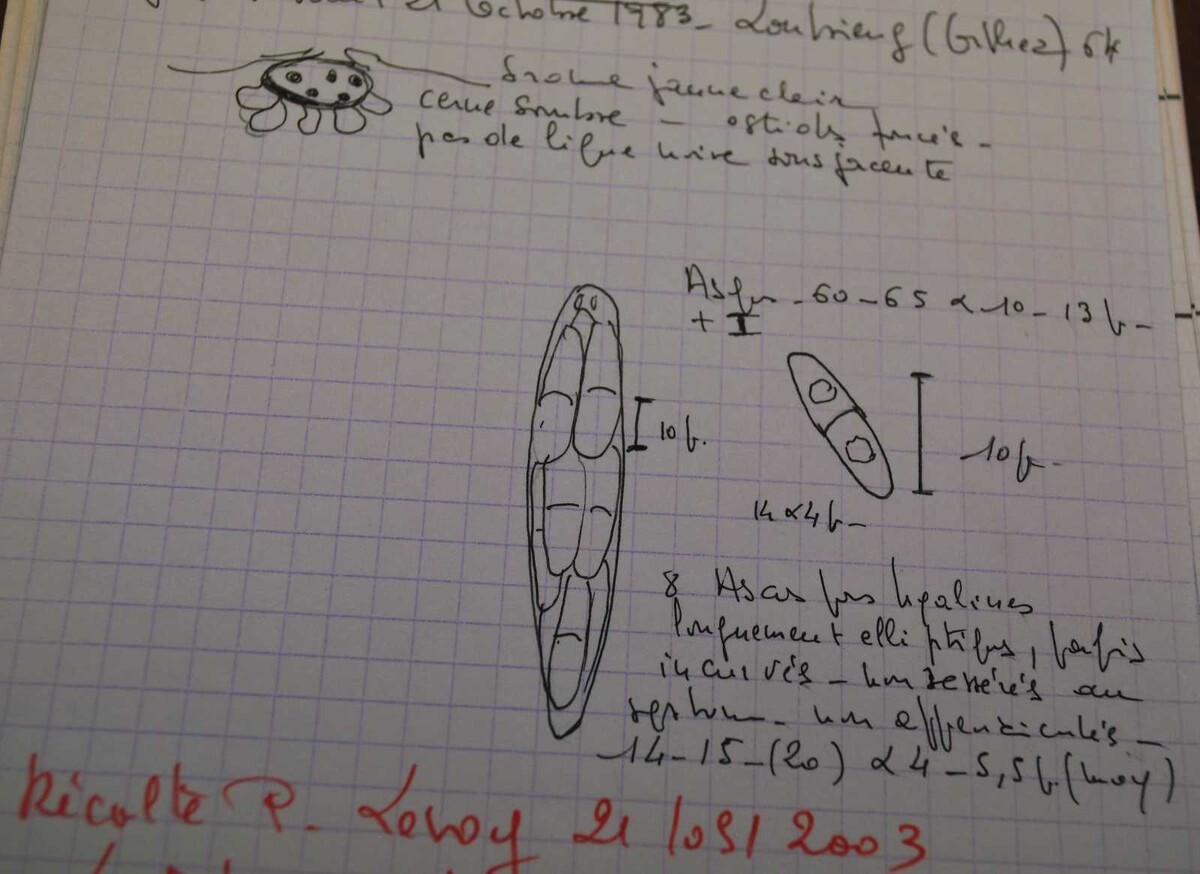 21 Octobre 1983 - Loubieng (Gilhez) 64
Stroma jaune clair
cerne sombre - ostioles foncés -
pas de ligne noire sous jacente
Asques - 60 - 65 x 10 - 13 µ -
+ I
10 µ.
10 µ -
14 x 4 µ -
8 Ascospores hyalines
longuement elliptiques, parfois
incurvés - non resserrés au
septum - non appendiculés -
14 - 15 - (20) x 4 - 5,5 µ (moy)
Récolte P. Leroy 21/09/2003